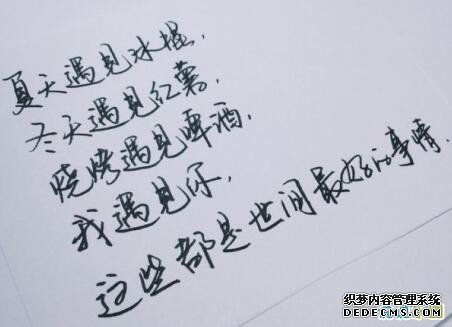 夏天遇见冰棍,
冬天遇见红薯,
烧烤遇见啤酒,
我遇见你,
这些都是世间最好的事情.
织梦内容管理系统
DEDECMS.COM